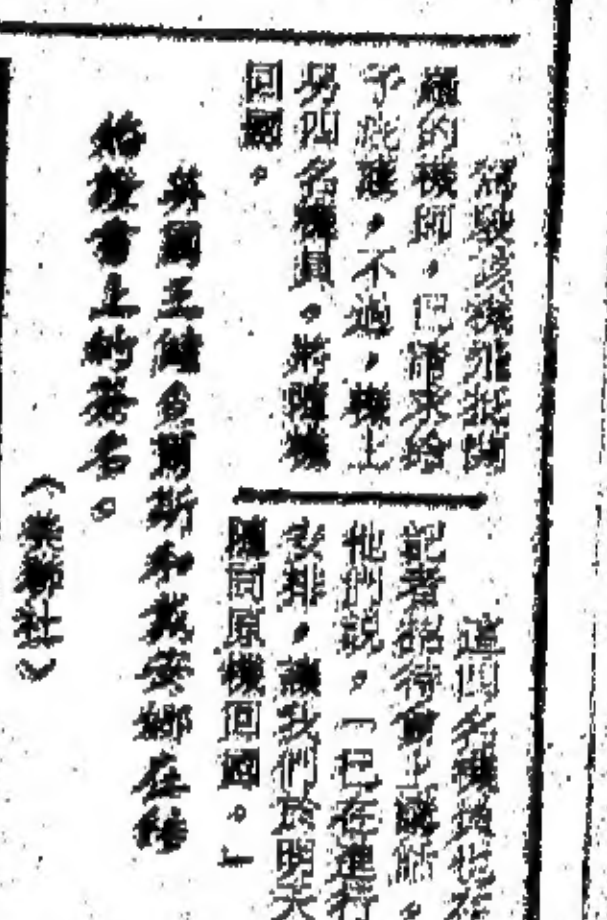 駕駛該機飛抵關
廠的機師，已請求給
予庇護，不過，機上
另四名機員，將隨機
回國。
這四名機員也在
記者招待會上講話。
他們說，「已在進行
安排，讓我們於明天
隨同原機回國。」
英國王儲查爾斯和戴安娜在結
婚證書上的簽名。
（美聯社）